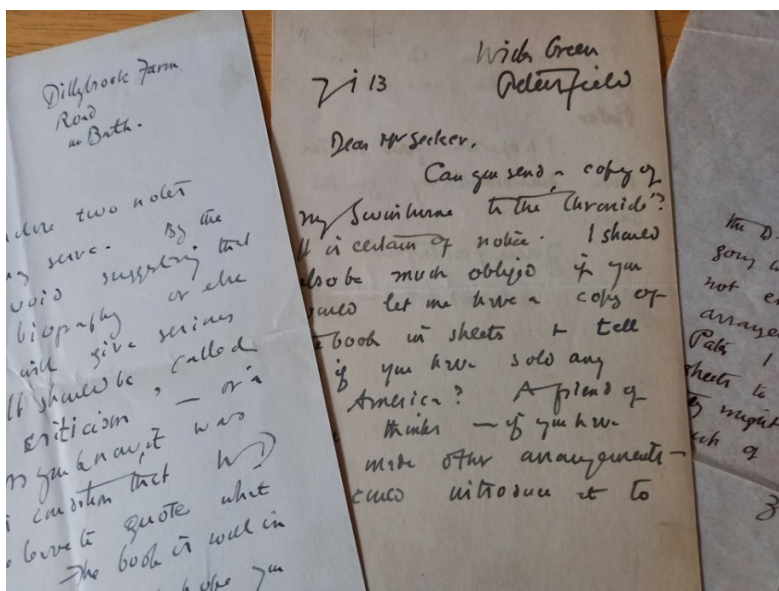 Dillybrook Farm
Road
nr Bath.
two notes
serve. By the
avoid suggesting that
biography or else
will give serious
It should be called
criticism — or a
As you know, it was
condition that WD
leave to quote what
The book is well in
hope you
Wick Green
Petersfield
7 i 13
Dear Mr Secker,
Can you send a copy of
my Swinburne to the Chronicle?
It is certain of notice. I should
also be much obliged if you
would let me have a copy of
the book in sheets & tell
if you have sold any
America? A friend of
thinks — if you have
made other arrangements —
could introduce it to
the D
going
not
arrange
Pater I
sheets to
might
of